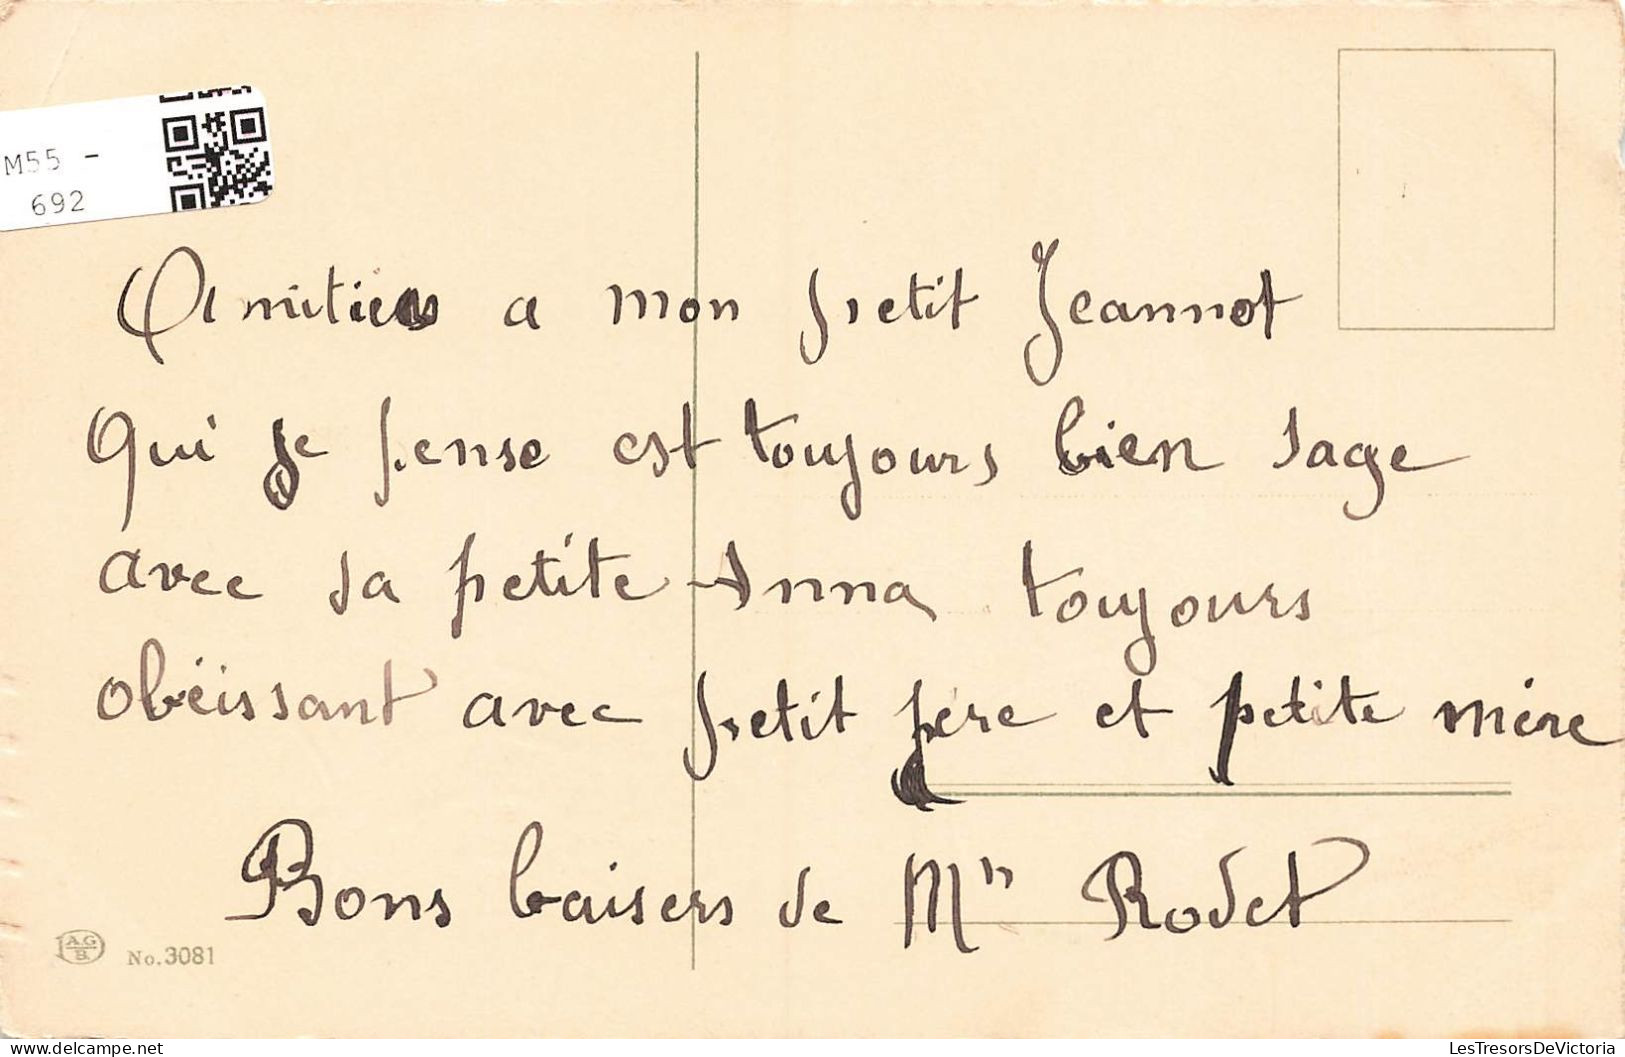 M55 -
692
Amitiés a mon petit Jeannot
Qui je pense est toujours bien sage
avec sa petite Anna toujours
obéissant avec petit père et petite mère
Bons baisers de Mn Rodet
A.G.
B.
No. 3081
LesTresorsDeVictoria